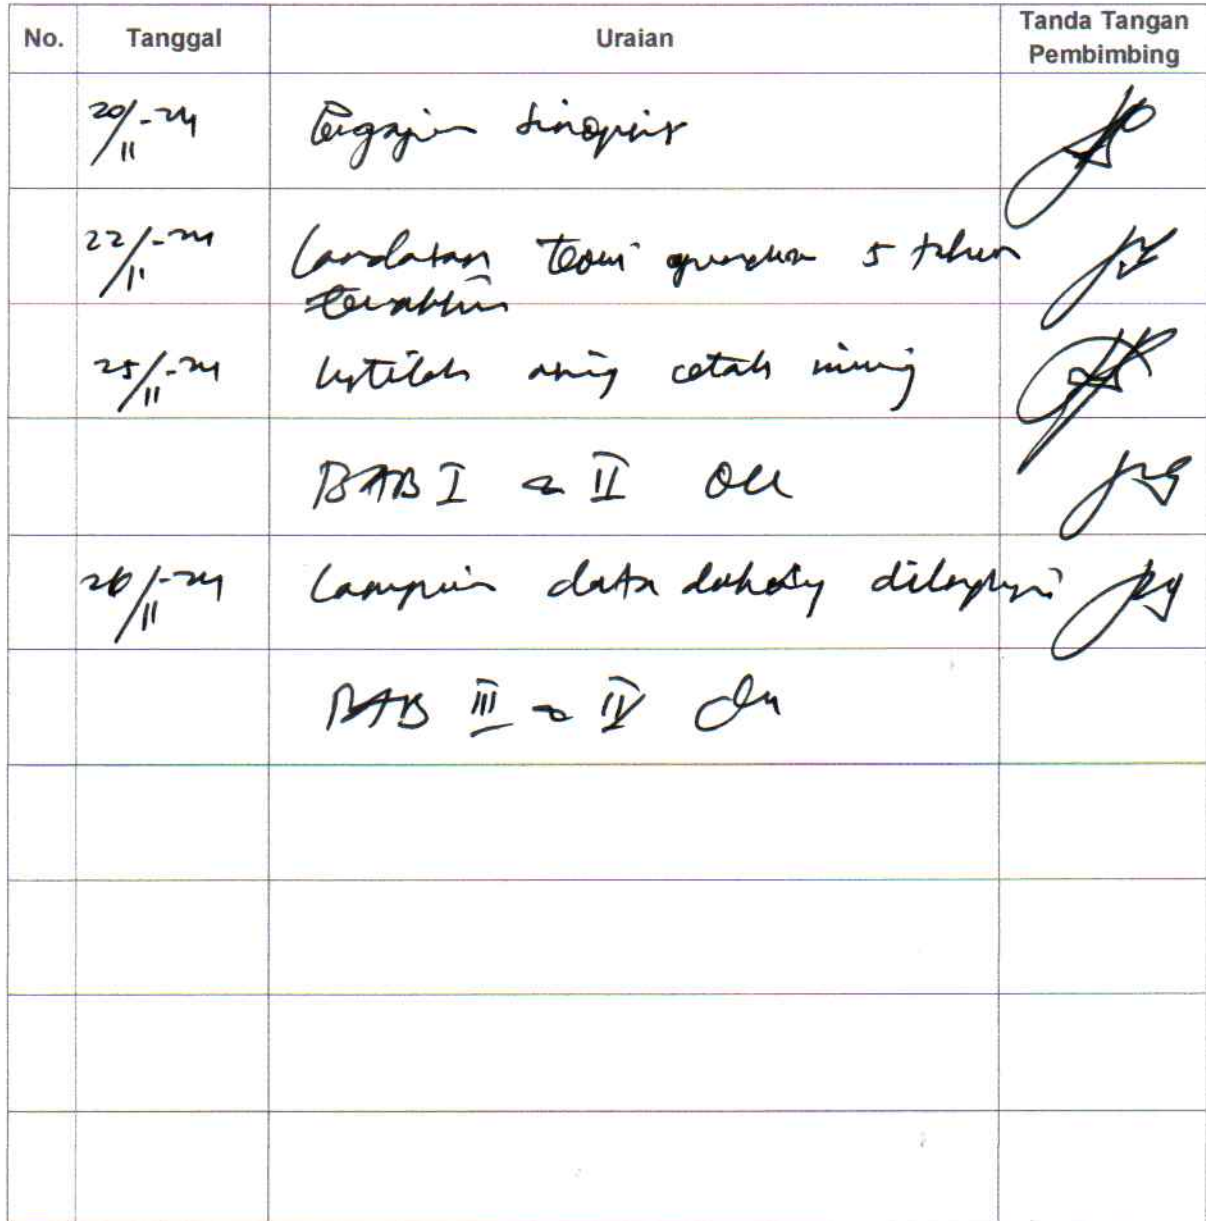 No. Tanggal Uraian Tanda Tangan
Pembimbing
20/11-24 Pengajuan sinopsis
22/11-24 Landasan teori gunakan 5 tahun
terakhir
25/11-24 Istilah asing cetak miring
BAB I & II
26/11-24 Lampiran data dilengkapi
BAB III & IV